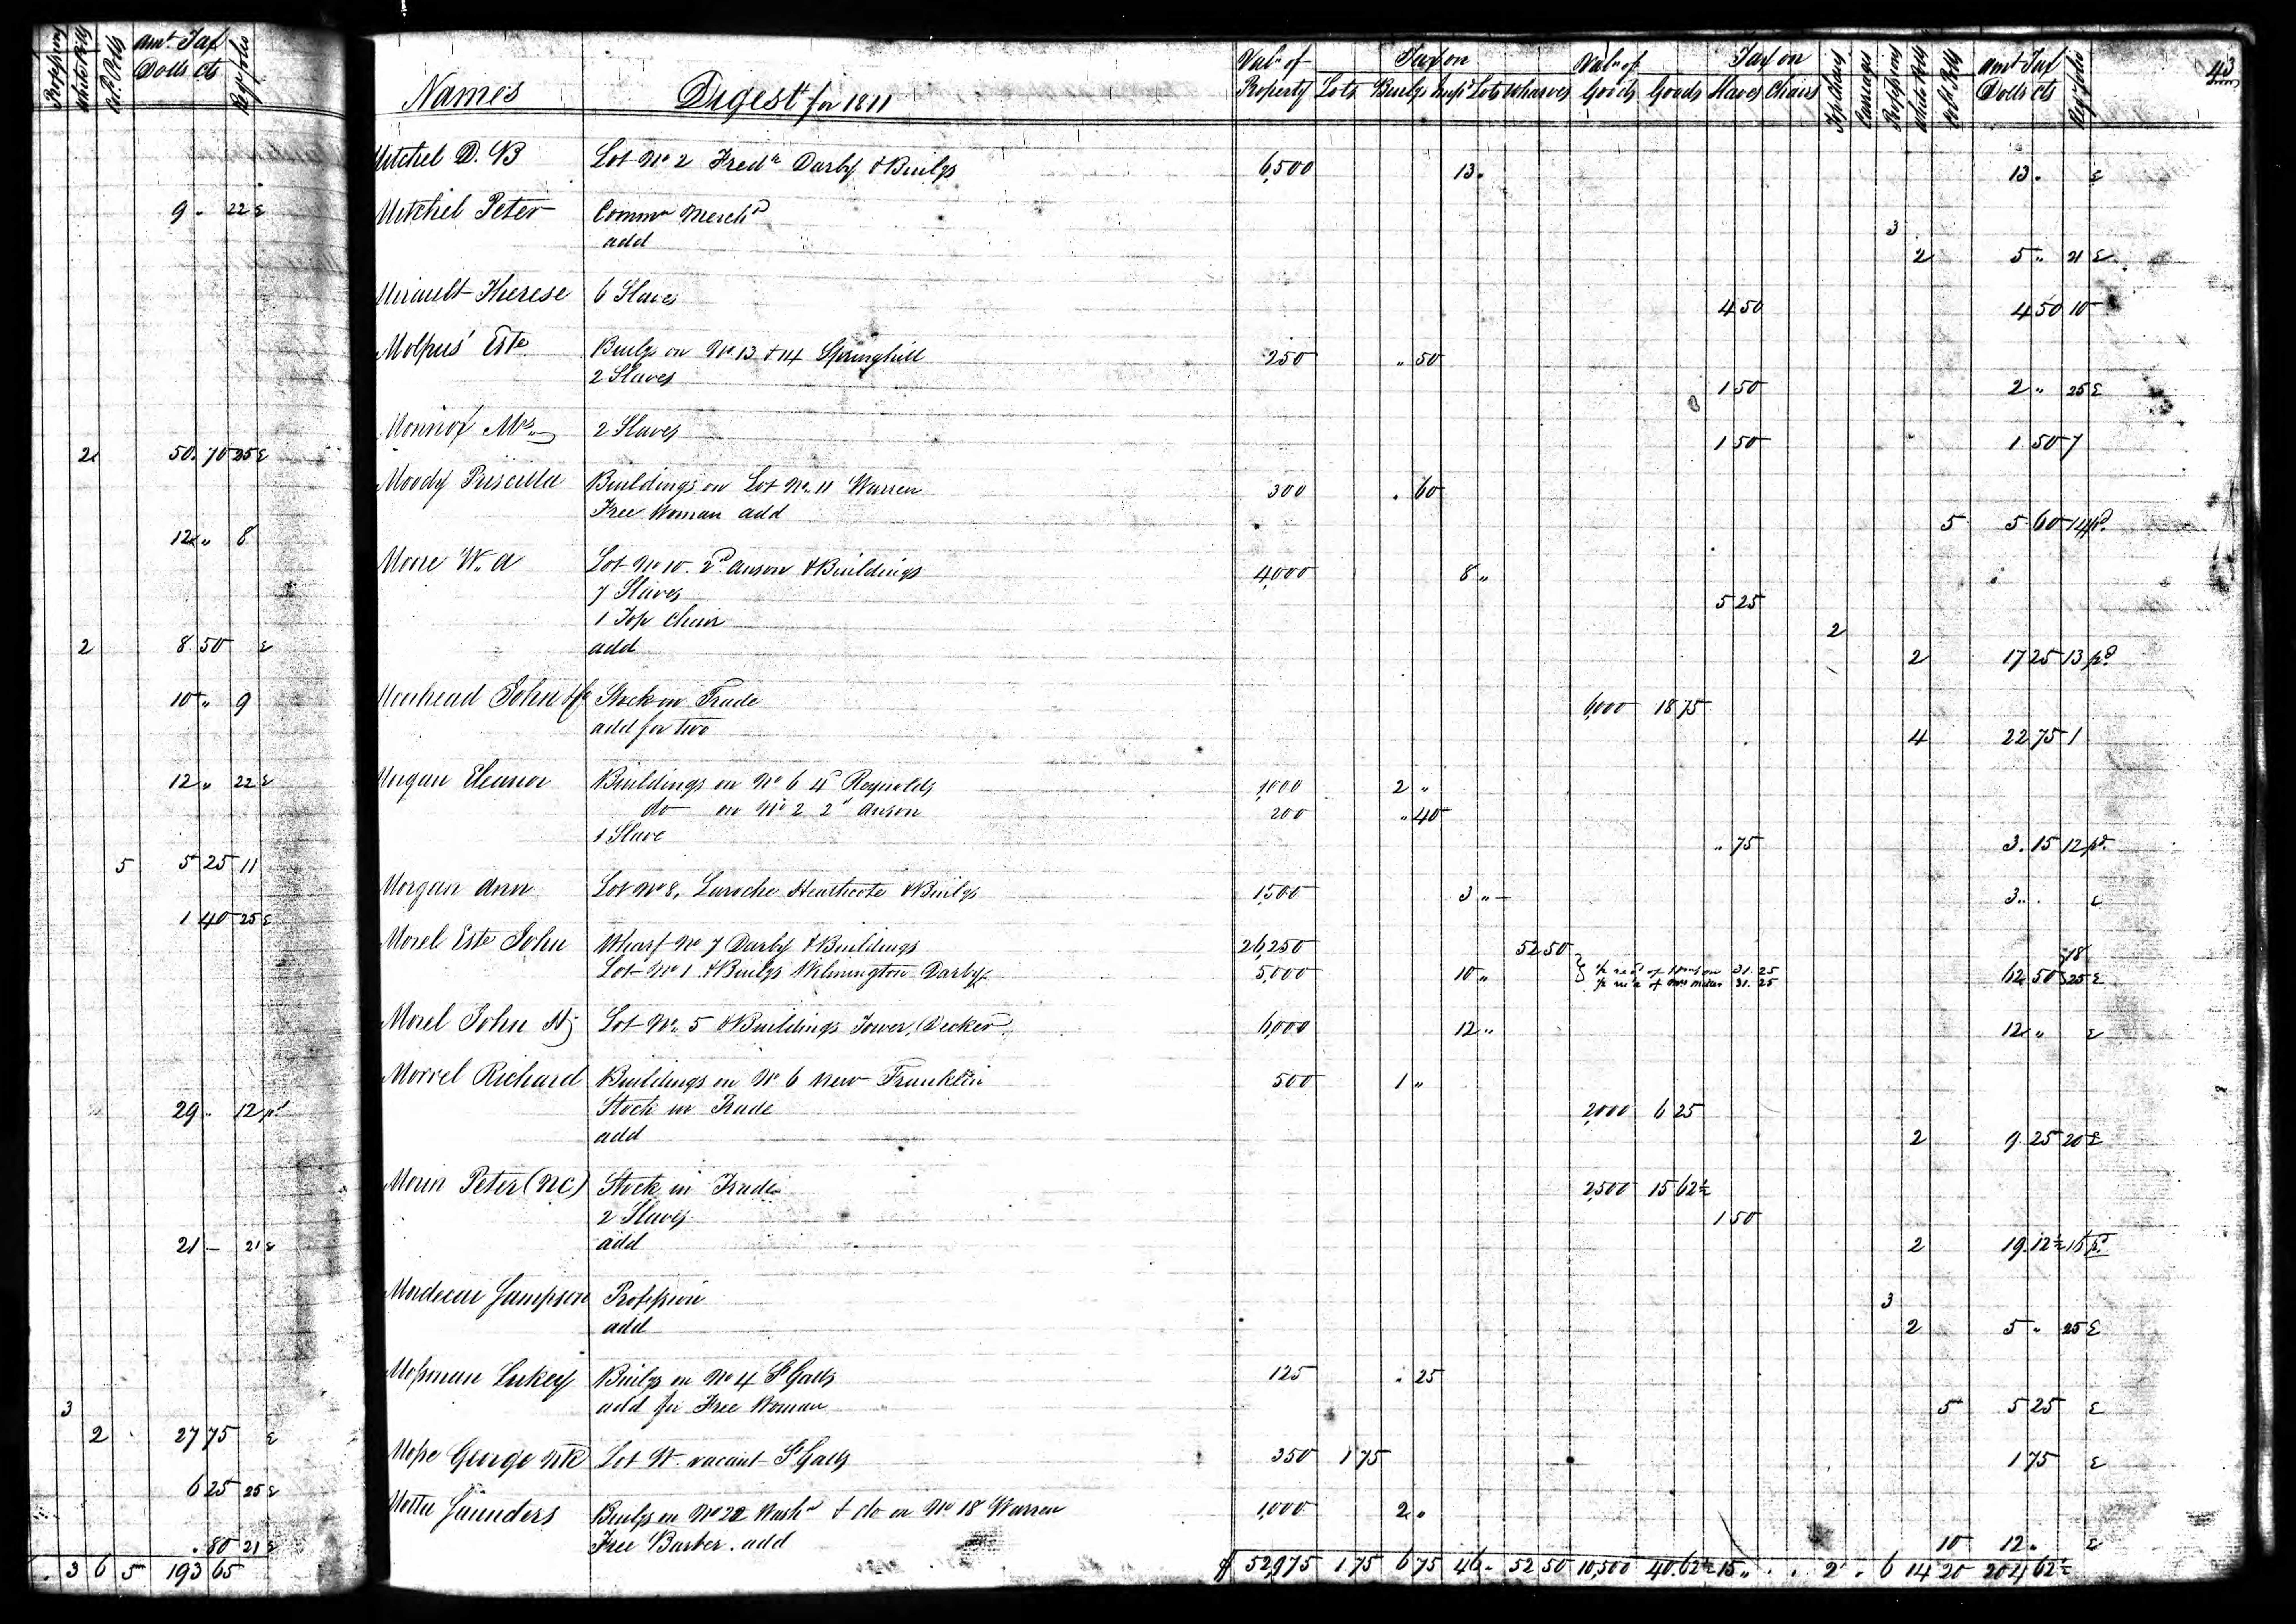 Profession White Polls Col.d Polls Amt. Tax Dolls Cts Ref folio
9 " 22 E
2 50. 70 25 E
12 " 8
2 8. 50 E
10 " 9
12 " 22 E
5 5 25 11
1 40 25 E
29 " 12 pd
21 — 21 E
3
2 27 75 E
6 25 25 E
. 80 21 E
. 3 6 5 193 65
43
Names Digest for 1811 Val.e of Property Tax on Lots Builgs Imp.d Lots Wharves Val.e of Goods Tax on Goods Slaves Chairs Top Chairs Carriages Professions White Polls Col.d Polls Amt Tax Dolls Cts Ref folio
Mitchel D. B Lot No 2 Fredk Darby & Builgs 6,500 13. 13. E
Mitchel Peter Commn Mercht 3
add 2 5 " 21 E
Mirault Therese 6 Slaves 4 50 4 50 10
Molpus' Este Builgs on No. 13 & 14 Springhill 250 " 50
2 Slaves 1 50 2 " 25 E
Monnox Mrs 2 Slaves 1 50 1. 50 7
Moody Priscilla Buildings on Lot No. 11 Warren 300 . 60
Free Woman add 5 5. 60 14 pd
Moore W. A Lot No 10. 2d Anson & Buildings 4,000 8 "
7 Slaves 5 25
1 Top Chair 2
add 2 17 25 13 pd
Moorhead John & Co Stock in Trade 6,000 18 75
add for two 4 22 75 1
Morgan Eleanor Buildings on No 6 4th Reynolds 1,000 2 "
do on No 2 2d Anson 200 " 40
1 Slave " 75 3. 15 12 pd
Morgan Ann Lot No 8, Laroche Heathcote & Builgs 1,500 3 " 3.. E
Morel Este John Wharf No 7 Darby & Buildings 26,250 52 50 18
Lot No 1 & Builgs Wilmington Darby 5,000 10 " 31. 25 62 50 25 E
31. 25
Morel John H Lot No. 5 & Buildings Tower, Decker 6,000 12 " 12 " E
Morrel Richard Buildings on No 6 New Franklin 500 1 "
Stock in Trade 2,000 6 25
add 2 9. 25 20 E
Morin Peter (NC) Stock in Trade 2,500 15 62½
2 Slaves 1 50
add 2 19. 12½ 16 pd
Mordecai Sampson Profession 3
add 2 5 " 25 E
Mosman Lukey Builgs on No 4 St Galls 125 . 25
add for Free Woman 5 5 25 E
Mose George Lot W. vacant St Galls 350 1 75 1 75 E
Motta Saunders Builgs on No 22 Washn & do on No 18 Warren 1,000 2.
Free Barber. add 10 12. E
$ 52,975 1 75 6 75 46 - 52 50 10,500 40. 62½ 15 " . . 2 . 6 14 20 204 62½